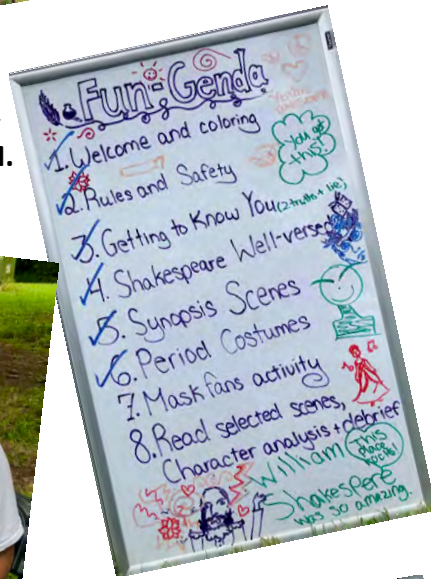 Fun-Genda
1. Welcome and coloring
you got this!
2. Rules and Safety
3. Getting to Know You (2 truths + lie)
4. Shakespeare Well-versed
5. Synopsis Scenes
6. Period Costumes
7. Mask fans activity
8. Read selected scenes,
Character analysis + debrief
William
This place rocks!
Shakespere
was so amazing.